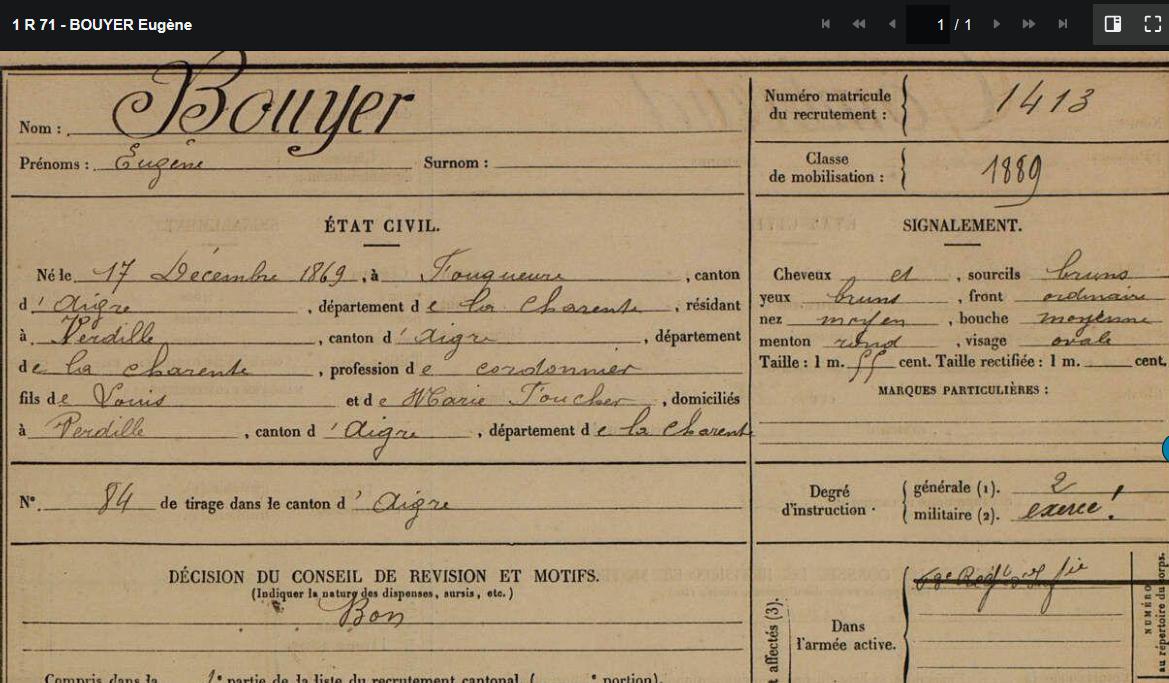 1 R 71 - BOUYER Eugène
1 / 1
Nom : Bouyer
Prénoms : Eugène Surnom :
Numéro matricule
du recrutement : 1413
Classe
de mobilisation : 1889
ÉTAT CIVIL.
Né le 17 Décembre 1869, à Fouqueure, canton
d'Aigre, département de la Charente, résidant
à Verdille, canton d'Aigre, département
de la Charente, profession de cordonnier
fils de Louis et de Marie Foucher, domiciliés
à Verdille, canton d'Aigre, département de la Charente
SIGNALEMENT.
Cheveux et, sourcils bruns
yeux bruns, front ordinaire
nez moyen, bouche moyenne
menton rond, visage ovale
Taille : 1 m. 55 cent. Taille rectifiée : 1 m. cent.
MARQUES PARTICULIÈRES :
N° 84 de tirage dans le canton d'Aigre
Degré
d'instruction
générale (1). 2
militaire (2). exercé
DÉCISION DU CONSEIL DE REVISION ET MOTIFS.
(Indiquer la nature des dispenses, sursis, etc.)
Bon
Compris dans la 1e partie de la liste du recrutement cantonal ( e portion).
affectés (3).
Dans
l'armée active.
Régt d'Infie
NUMÉRO
au répertoire du corps.